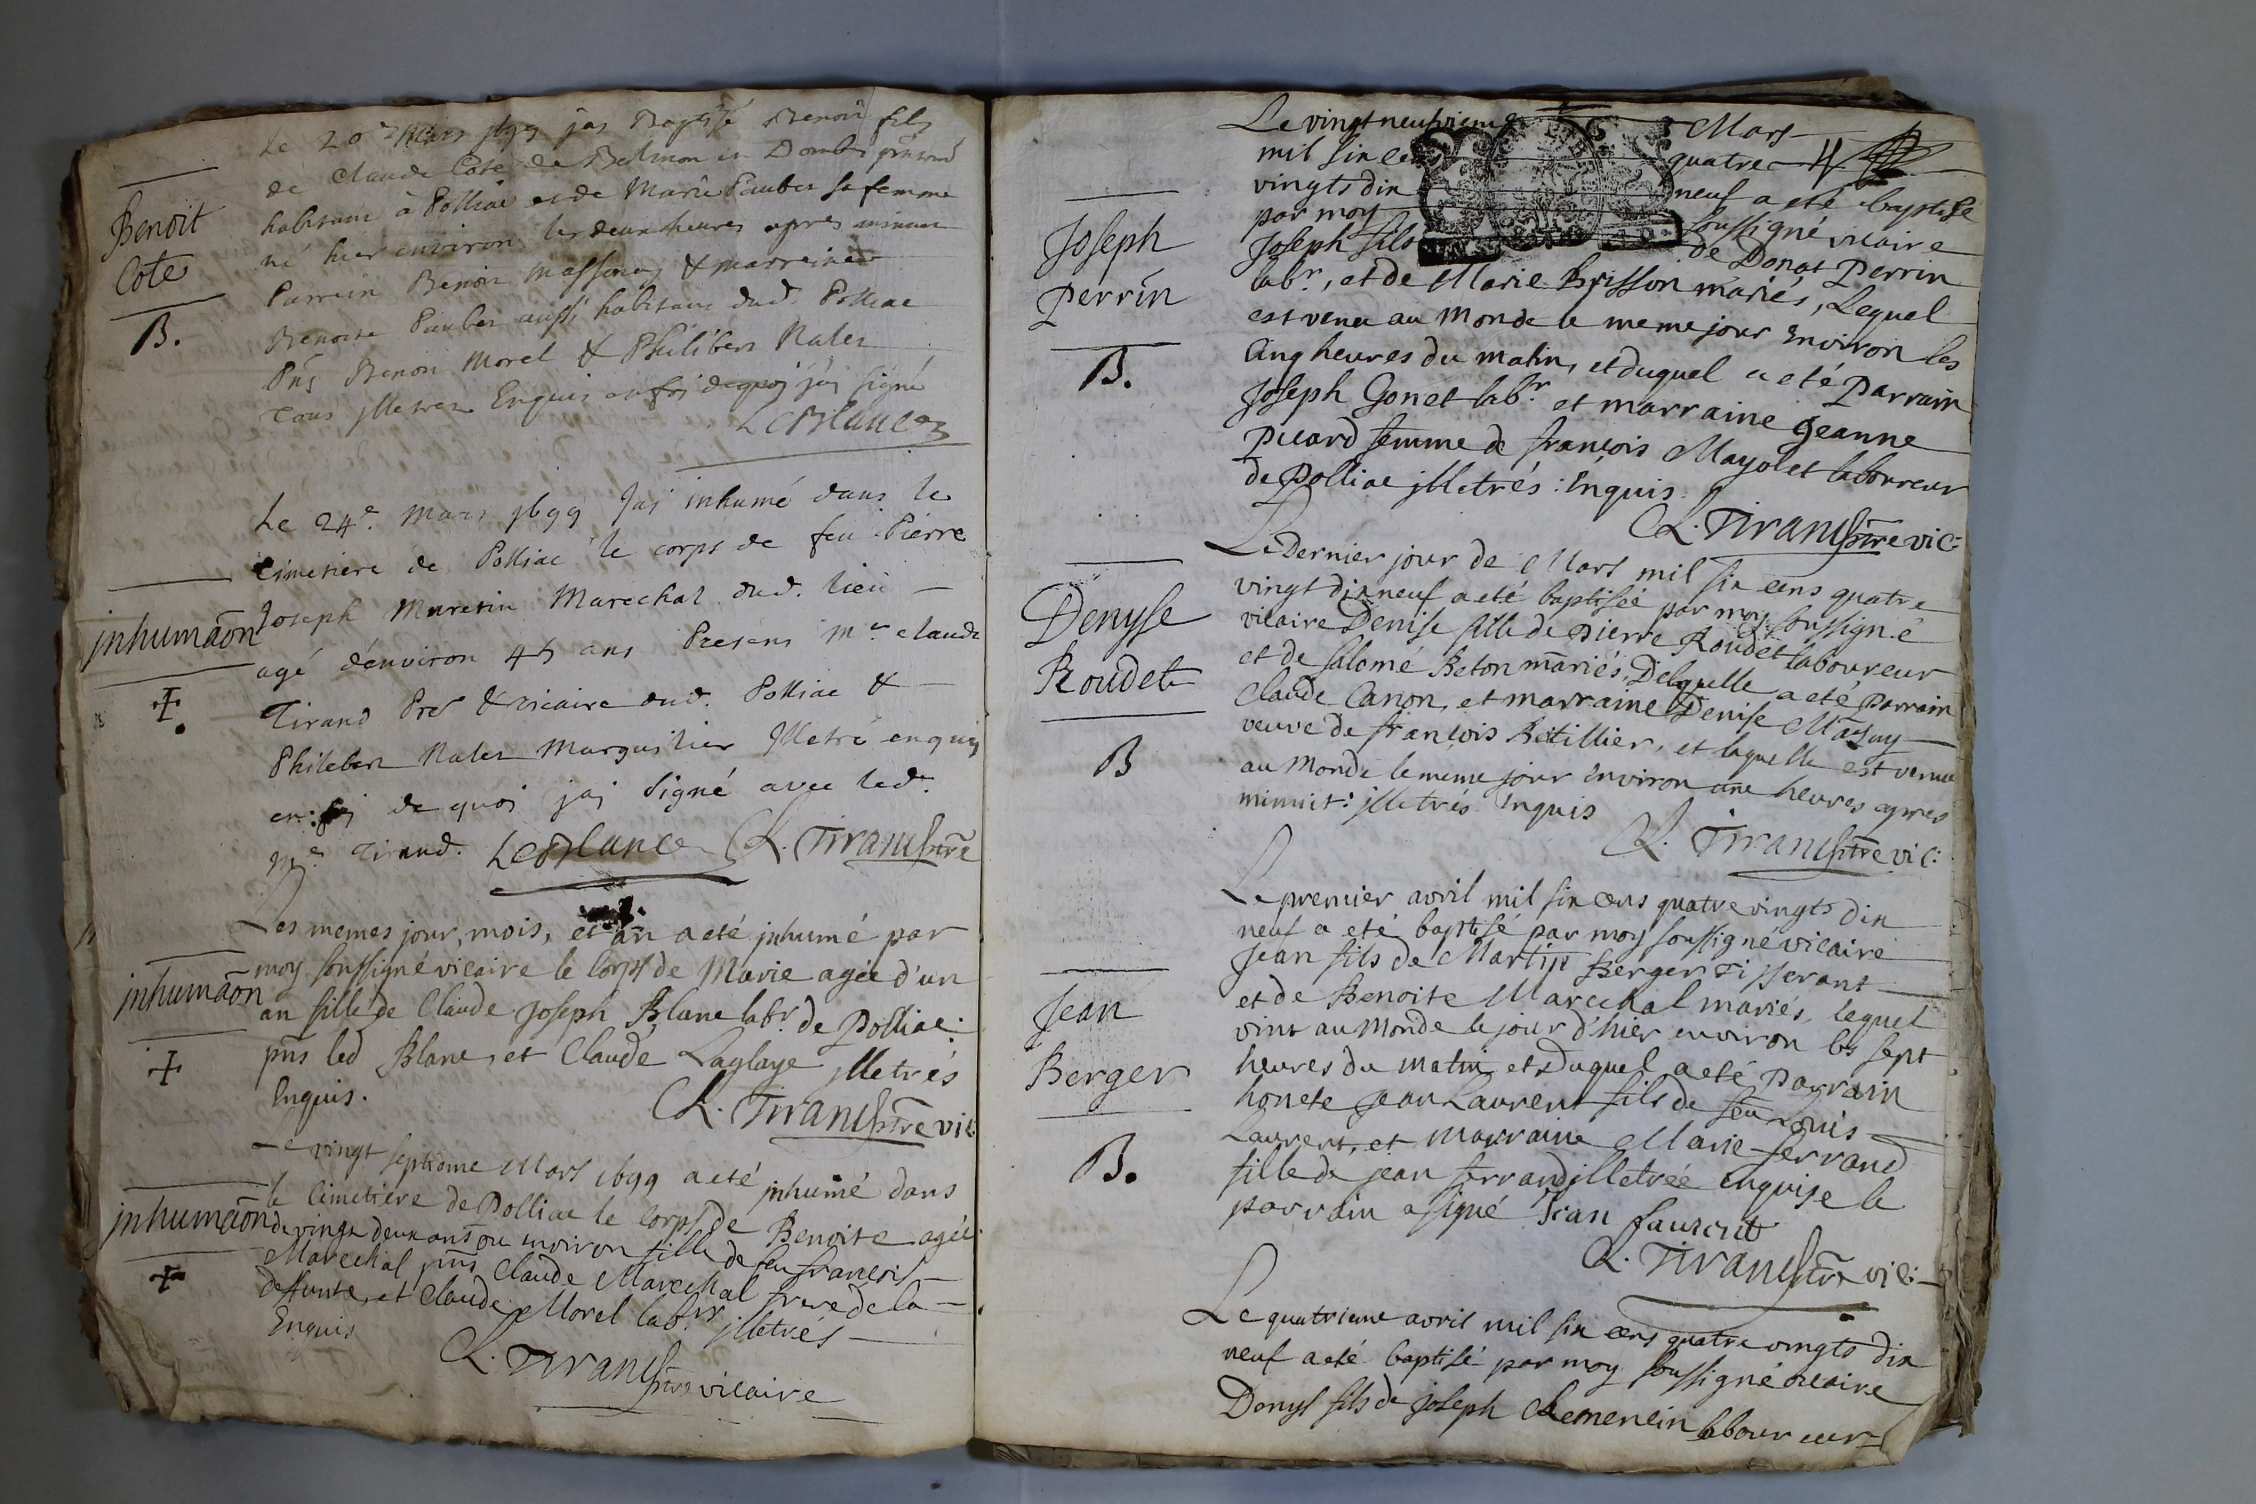 Le 20e Mars 1699 jay Baptisé Benoit fils
de Claude Cote de Belmon in Dombe
habitant à Polliac et de Marie Pauber sa femme
né hier environ les deux heures apres minuit
Parrein Benoit Massonay & marreine
Benoite Pauber aussi habitans dud. Polliac
Pns Benoit Morel & Philibert Nales
Tous illetrez Enquis en foi de quoi j'ai signé
LeBlanc
Benoit
Cote
B.
Le 24e. Mars 1699 Jai inhumé dans le
Cimetiere de Polliac le corps de feu Pierre
Joseph Muretin Marechal dud. lieu
agé d'environ 45 ans Presens Mre Claude
Tirand Pre & vicaire dud. Polliac &
Philebert Nales Marguilier Illetré enquis
en foi de quoi jai signé avec led.
Mre Tirand. LeBlanc C. Tirand ptre
inhumaôn
Les memes jour, mois, et an a eté inhumé par
moy soussigné vicaire le Corps de Marie agée d'un
an fille de Claude Joseph Blanc labr. de Polliac:
pns led Blanc, et Claude Laglaye illetrés
Enquis.
C. Tirand ptre vic:
inhumaôn
Le vingt septieme Mars 1699 a eté inhumé dans
le Cimetiere de Polliac le Corps de Benoite agée
de vingt deux ans ou environ fille de feu francois
Marechal pns Claude Marechal frere de la
deffunte, et Claude Morel labrs. illetrés
Enquis
C. Tirand ptre vicaire
inhumaôn
Le vingt neufvieme Mars
mil six cens quatre 4
vingts dix neuf a eté baptisé
par moy soussigné vicaire
Joseph fils de Donat Perrin
labr., et de Marie Brisson mariés, Lequel
est venu au Monde le meme jour Environ les
Cinq heures du matin, et duquel a eté Parrain
Joseph Gonet labr. et marraine Jeanne
Picard femme de françois Mayolet laboureur
de Polliac illetrés: Enquis.
C. Tirand ptre vic:
Joseph
Perrin
B.
Le Dernier jour de Mars mil six cens quatre
vingt dix neuf a eté baptisée par moy soussigné
vicaire Denise fille de Pierre Roudet laboureur
et de Salomé Beton mariés, Delaquelle a eté parrain
Claude Canon, et marraine Denise
veuve de françois Retillier, et laquelle est venue
au Monde le meme jour Environ une heures apres
minuit: illetrés Enquis
C. Tirand ptre vic:
Denyse
Roudet
B
Le premier avril mil six cens quatre vingts dix
neuf a eté baptisé par moy soussigné vicaire
Jean fils de Martin Berger Tisserant
et de Benoite Marechal mariés, lequel
vint au Monde le jour d'hier environ les sept
heures du matin, et Duquel a eté parrain
honete Jean Laurent fils de feu Louis
Laurent, et marraine Marie ferrand
fille de jean ferrand illetrée enquise le
parrain a signé Jean Laurent
C. Tirand ptre vic:
Jean
Berger
B.
Le quatrieme avril mil six cens quatre vingts dix
neuf a eté baptisé par moy soussigné vicaire
Denys fils de Joseph Clemencin laboureur